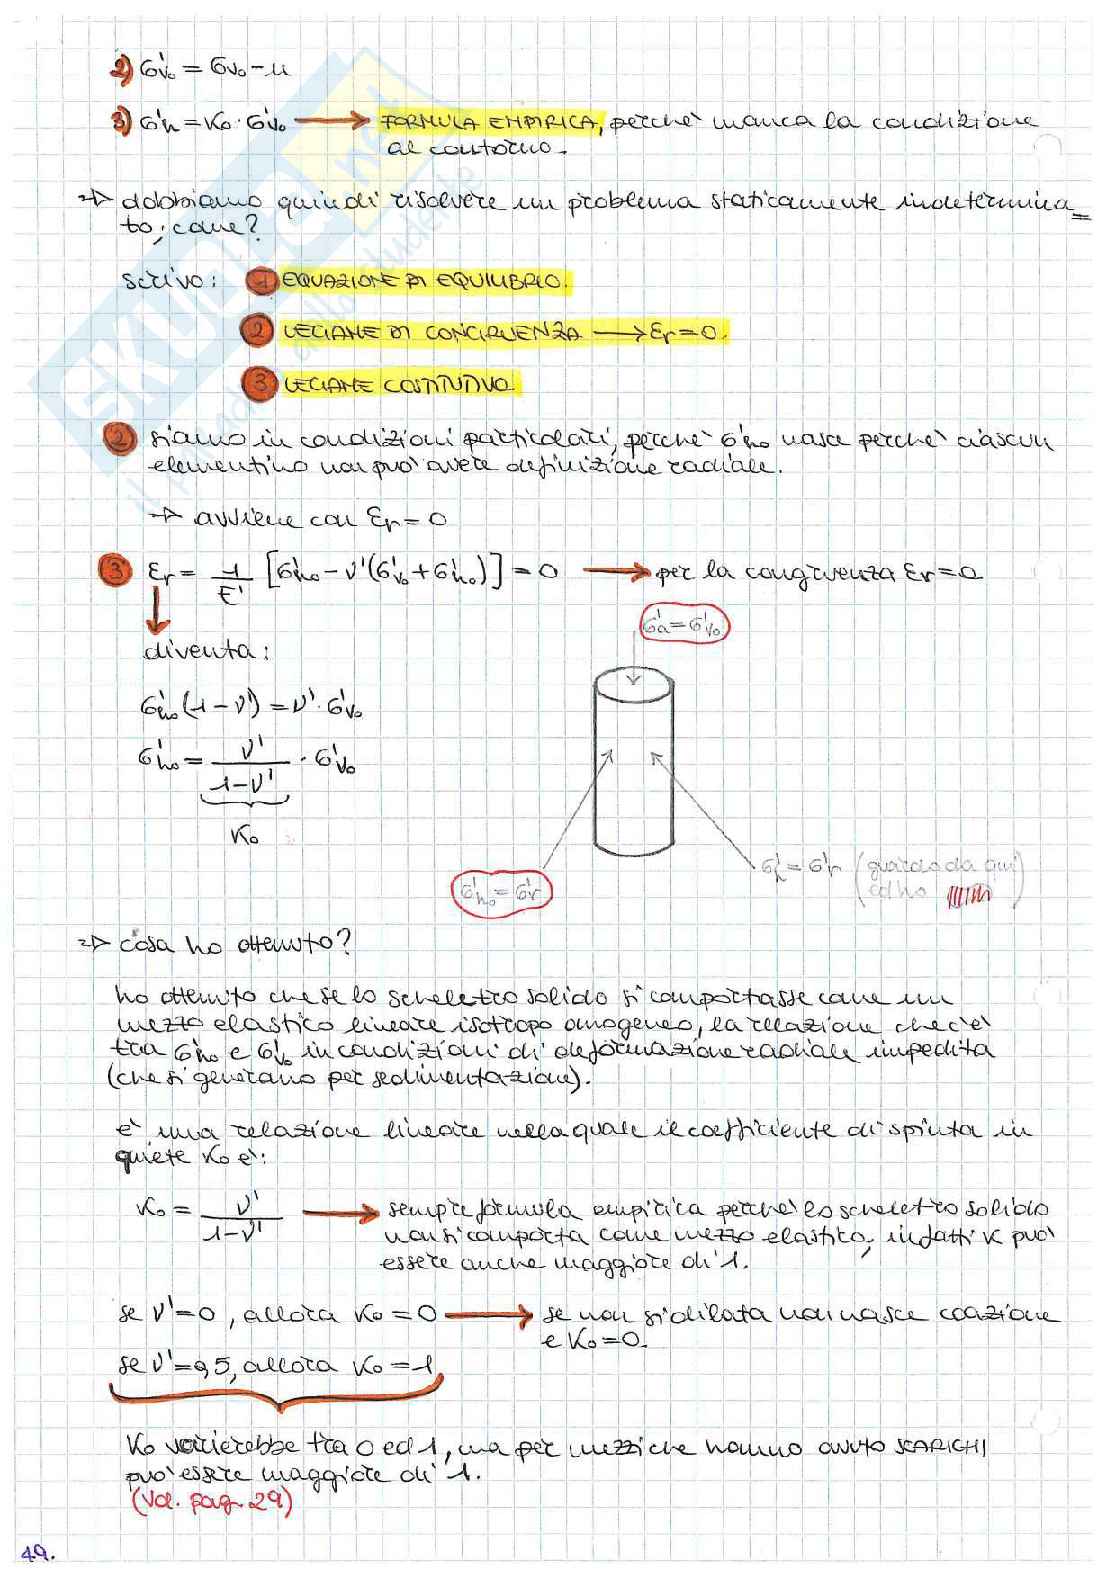 2) σ'v₀ = σv₀ - u
3) σ'h = K₀ · σ'v₀ → FORMULA EMPIRICA, perché manca la condizione
al contorno.
⇒ dobbiamo quindi risolvere un problema staticamente indetermina=
to; come?
scrivo: 1 EQUAZIONE DI EQUILIBRIO.
2 LEGAME DI CONGRUENZA → εr = 0.
3 LEGAME COSTITUTIVO
2 siamo in condizioni particolari, perché σ'h₀ nasce perché ciascun
elementino non può avere definizione radiale.
→ avviene con εr = 0
3 εr = 1/E' [σ'h₀ - ν'(σ'v₀ + σ'h₀)] = 0 → per la congruenza εr = 0
σ'a = σ'v₀
diventa:
σ'h₀(1 - ν') = ν' · σ'v₀
σ'h₀ = ν'/(1-ν') · σ'v₀
K₀
σ'h = σ'r (guardo da qui
σ'h₀ = σ'r
ed ho )
⇒ cosa ho ottenuto?
ho ottenuto che se lo scheletro solido si comportasse come un
mezzo elastico lineare isotropo omogeneo, la relazione che c'è
tra σ'h₀ e σ'v₀ in condizioni di deformazione radiale impedita
(che si generano per sedimentazione).
è una relazione lineare nella quale il coefficiente di spinta in
quiete K₀ è:
K₀ = ν'/(1-ν') → sempre formula empirica perché lo scheletro solido
non si comporta come mezzo elastico; infatti K può
essere anche maggiore di 1.
se ν'=0, allora K₀ = 0 → se non si dilata non nasce coazione
e K₀ = 0.
se ν'=0,5, allora K₀ = 1
K₀ varierebbe tra 0 ed 1, ma per mezzi che hanno avuto SCARICHI
può essere maggiore di 1.
(Vd. pag. 29)
49.